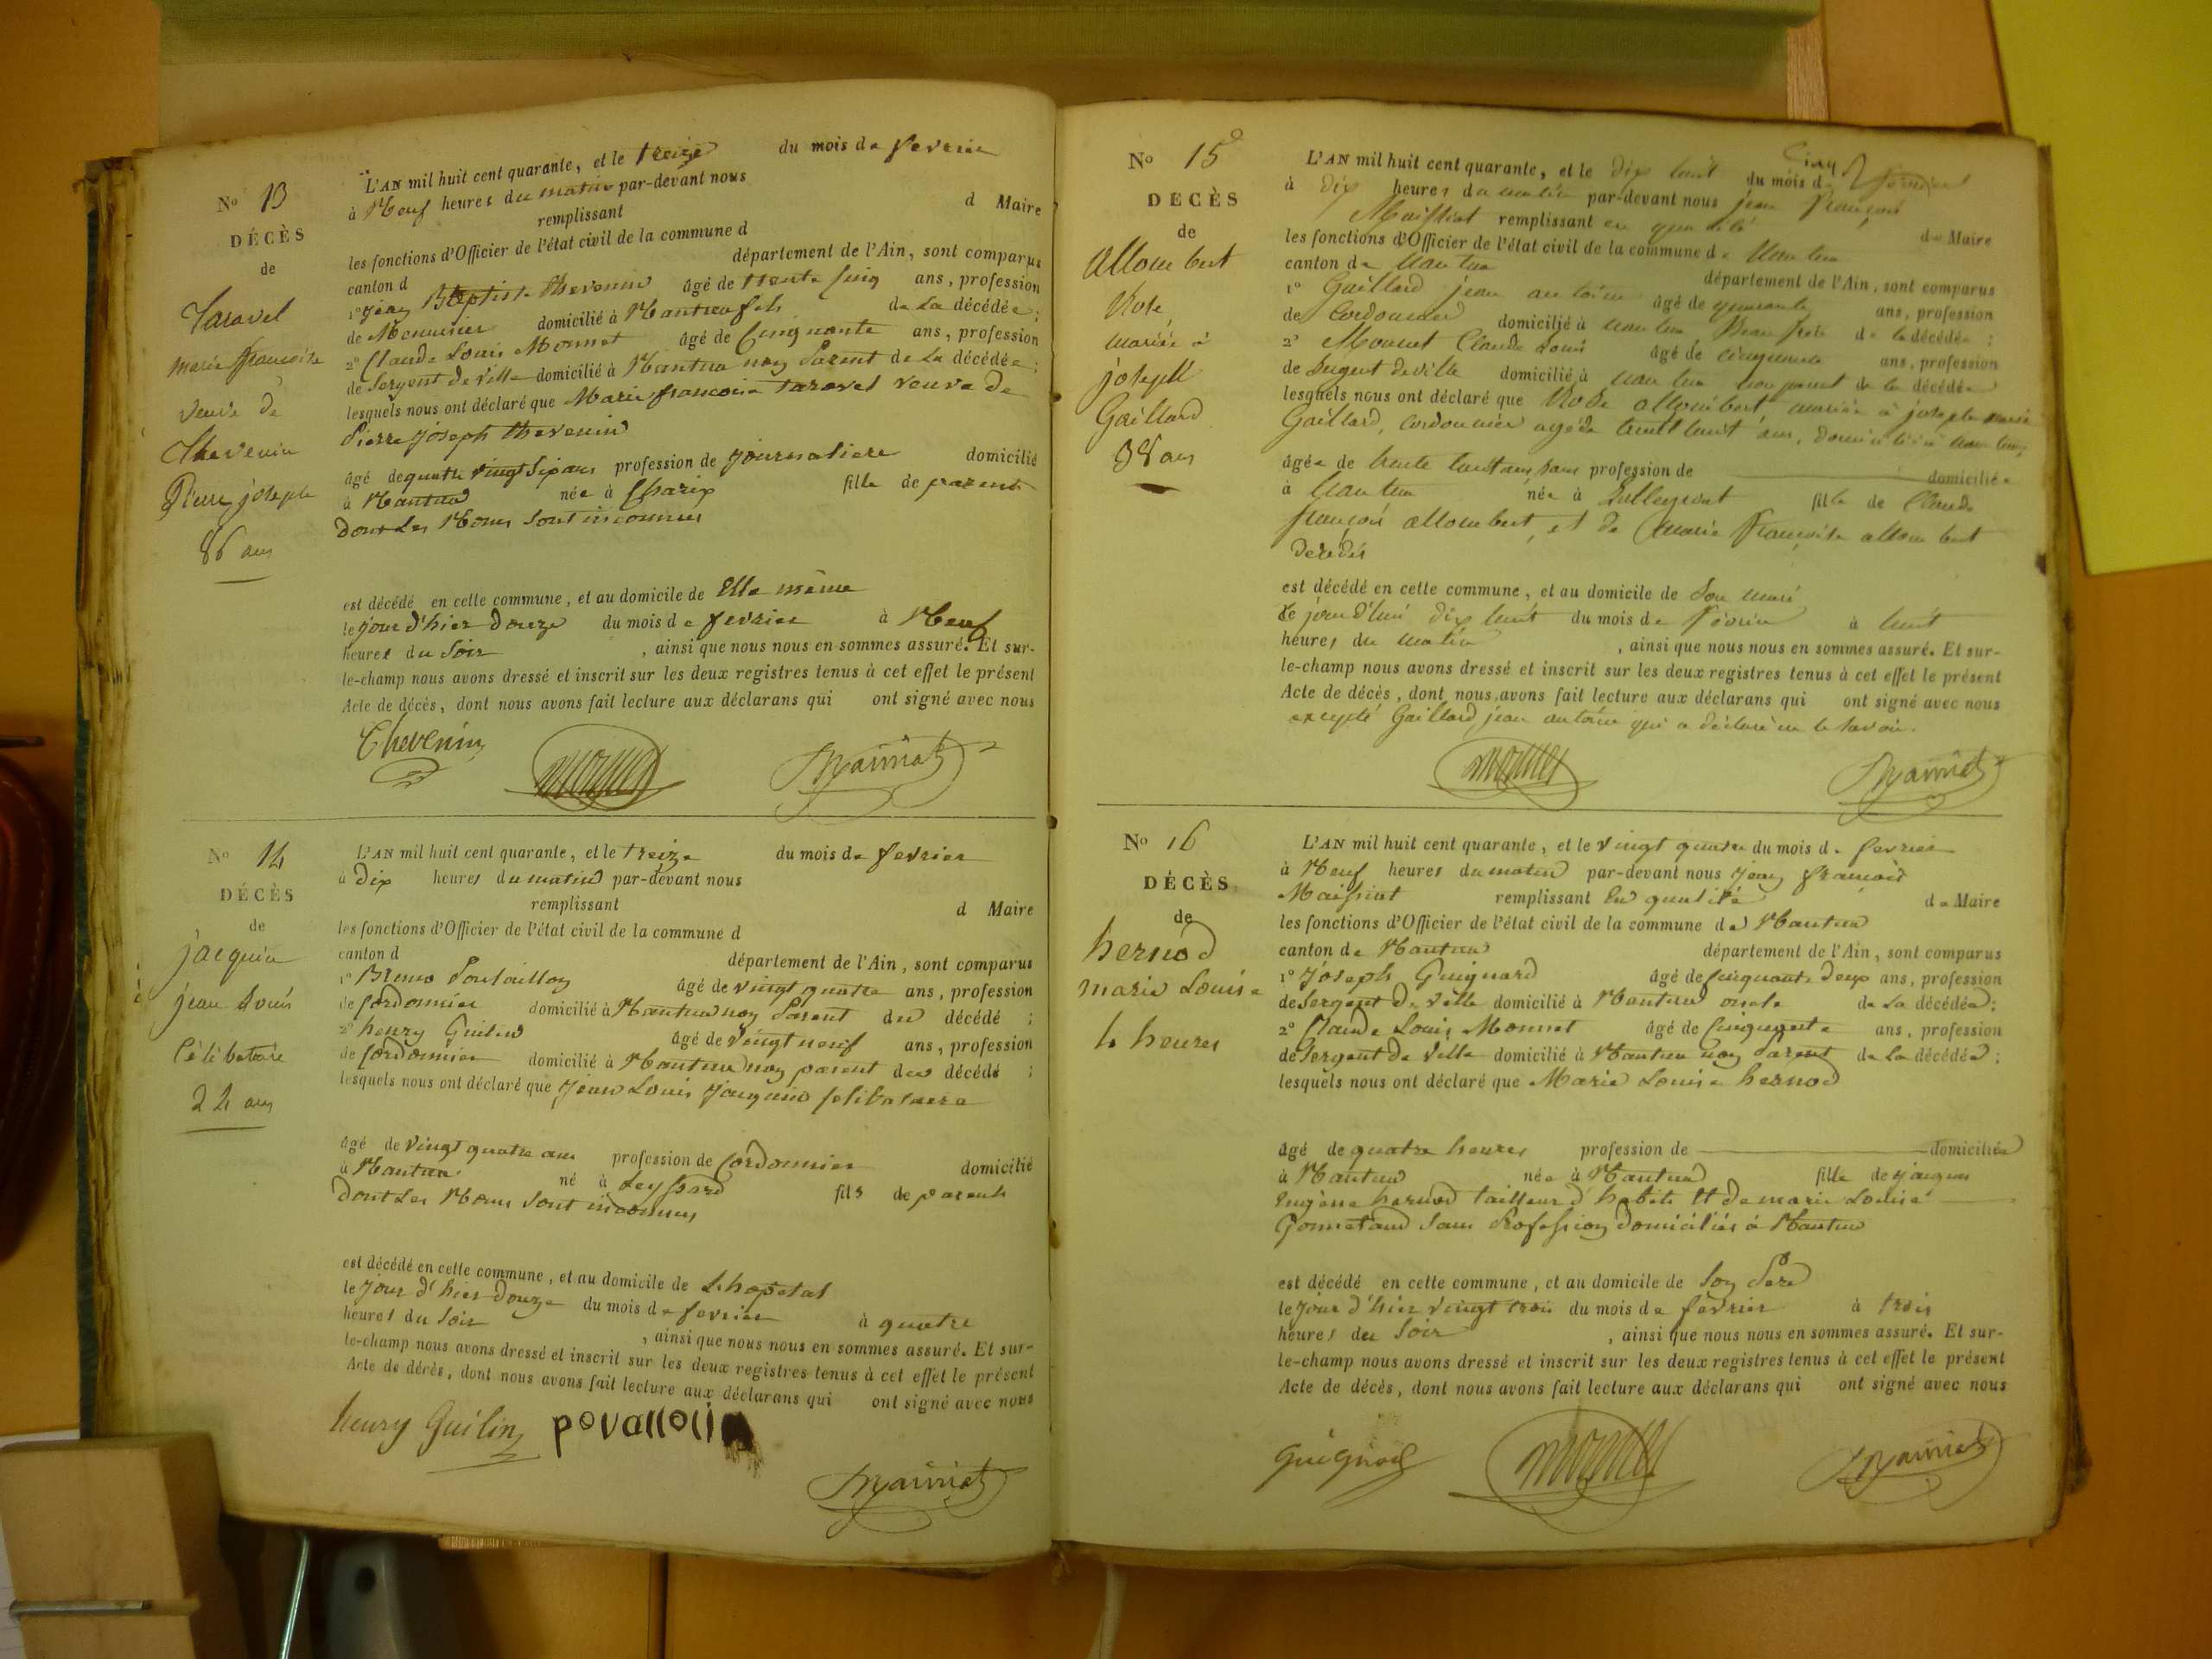 No 13
DÉCÈS
de
Taravel
marie françoise
veuve de
Thevenin
Pierre joseph
86 ans
L'AN mil huit cent quarante, et le treize du mois de fevrier
à Neuf heures du matin par-devant nous
remplissant d Maire
les fonctions d'Officier de l'état civil de la commune d
canton d département de l'Ain, sont comparus
1° Jean Baptiste thevenin âgé de trente cinq ans, profession
de Menuisier domicilié à Nantua fils de la décédée ;
2° Claude Louis Monnet âgé de Cinquante ans, profession
de Sergent de ville domicilié à Nantua non Parent de la décédée ;
lesquels nous ont déclaré que Marie françoise taravel veuve de
Pierre joseph thevenin
âgé de quatre vingt six ans profession de journaliere domicilié
à Nantua née à Charix fille de parents
dont Les Noms Sont inconnus
est décédé en cette commune, et au domicile de Elle même
le jour d'hier douze du mois de fevrier à Neuf
heures du Soir , ainsi que nous nous en sommes assuré. Et sur-
le-champ nous avons dressé et inscrit sur les deux registres tenus à cet effet le présent
Acte de décès, dont nous avons fait lecture aux déclarans qui ont signé avec nous
Thevenin monnet Maissiat
No 14
DÉCÈS
de
jacquin
jean Louis
Célibataire
24 ans
L'AN mil huit cent quarante, et le treize du mois de fevrier
à dix heures du matin par-devant nous
remplissant d Maire
les fonctions d'Officier de l'état civil de la commune d
canton d département de l'Ain, sont comparus
1° Bruno âgé de vingt quatre ans, profession
de Cordonnier domicilié à Nantua non Parent du décédé ;
2° henry Guilin âgé de vingt neuf ans, profession
de Cordonnier domicilié à Nantua non parent du décédé ;
lesquels nous ont déclaré que Jean Louis Jacquin Selibataire
âgé de vingt quatre ans profession de Cordonnier domicilié
à Nantua né à Leyssard fils de parents
dont Les Noms Sont inconnus
est décédé en cette commune, et au domicile de L'hopital
le Jour d'hier douze du mois de fevrier à quatre
heures du Soir , ainsi que nous nous en sommes assuré. Et sur-
le-champ nous avons dressé et inscrit sur les deux registres tenus à cet effet le présent
Acte de décès, dont nous avons fait lecture aux déclarans qui ont signé avec nous
henry Guilin
Maissiat
No 15
DÉCÈS
de
allombert
Rose
mariée à
joseph
Gaillard
38 ans
L'AN mil huit cent quarante, et le dix huit du mois de
à Dix heures du matin par-devant nous jean François
Maissiat remplissant en qualité de Maire
les fonctions d'Officier de l'état civil de la commune de Nantua
canton de Nantua département de l'Ain, sont comparus
1° Gaillard jean antoine âgé de quarante ans, profession
de Cordonnier domicilié à nantua Beau frere de la décédée ;
2° Monnet Claude Louis âgé de cinquante ans, profession
de Sergent de ville domicilié à nantua non parent de la décédée
lesquels nous ont déclaré que Rose allombert mariée à joseph marie
Gaillard, Cordonnier agé de trente huit ans, domicilié à nantua,
âgée de trente huit ans sans profession de domiciliée
à Nantua née à fille de Claude
françois allombert, et de Marie Françoise allombert
décédés
est décédé en cette commune, et au domicile de Son mari
le jourd'hui dix huit du mois de Février à huit
heures du matin , ainsi que nous nous en sommes assuré. Et sur-
le-champ nous avons dressé et inscrit sur les deux registres tenus à cet effet le présent
Acte de décès, dont nous avons fait lecture aux déclarans qui ont signé avec nous
excepté Gaillard jean antoine qui a déclaré ne le savoir.
monnet Maissiat
No 16
DÉCÈS
de
hernod
marie Louise
4 heures
L'AN mil huit cent quarante, et le vingt quatre du mois de fevrier
à Neuf heures du matin par-devant nous jean françois
Maissiat remplissant en qualité de Maire
les fonctions d'Officier de l'état civil de la commune de Nantua
canton de Nantua département de l'Ain, sont comparus
1° Joseph Guignard âgé de cinquante deux ans, profession
de Sergent de ville domicilié à Nantua oncle de la décédée ;
2° Claude Louis Monnet âgé de Cinquante ans, profession
de Sergent de Ville domicilié à Nantua non Parent de la décédée ;
lesquels nous ont déclaré que Marie Louise hernod
âgé de quatre heures profession de domiciliée
à Nantua née à Nantua fille de jacques
Eugène hernod tailleur d'habits et de marie Louise
sans Profession domiciliés à Nantua
est décédé en cette commune, et au domicile de Son Père
le jour d'hier vingt trois du mois de février à trois
heures du Soir , ainsi que nous nous en sommes assuré. Et sur-
le-champ nous avons dressé et inscrit sur les deux registres tenus à cet effet le présent
Acte de décès, dont nous avons fait lecture aux déclarans qui ont signé avec nous
guignard monnet Maissiat